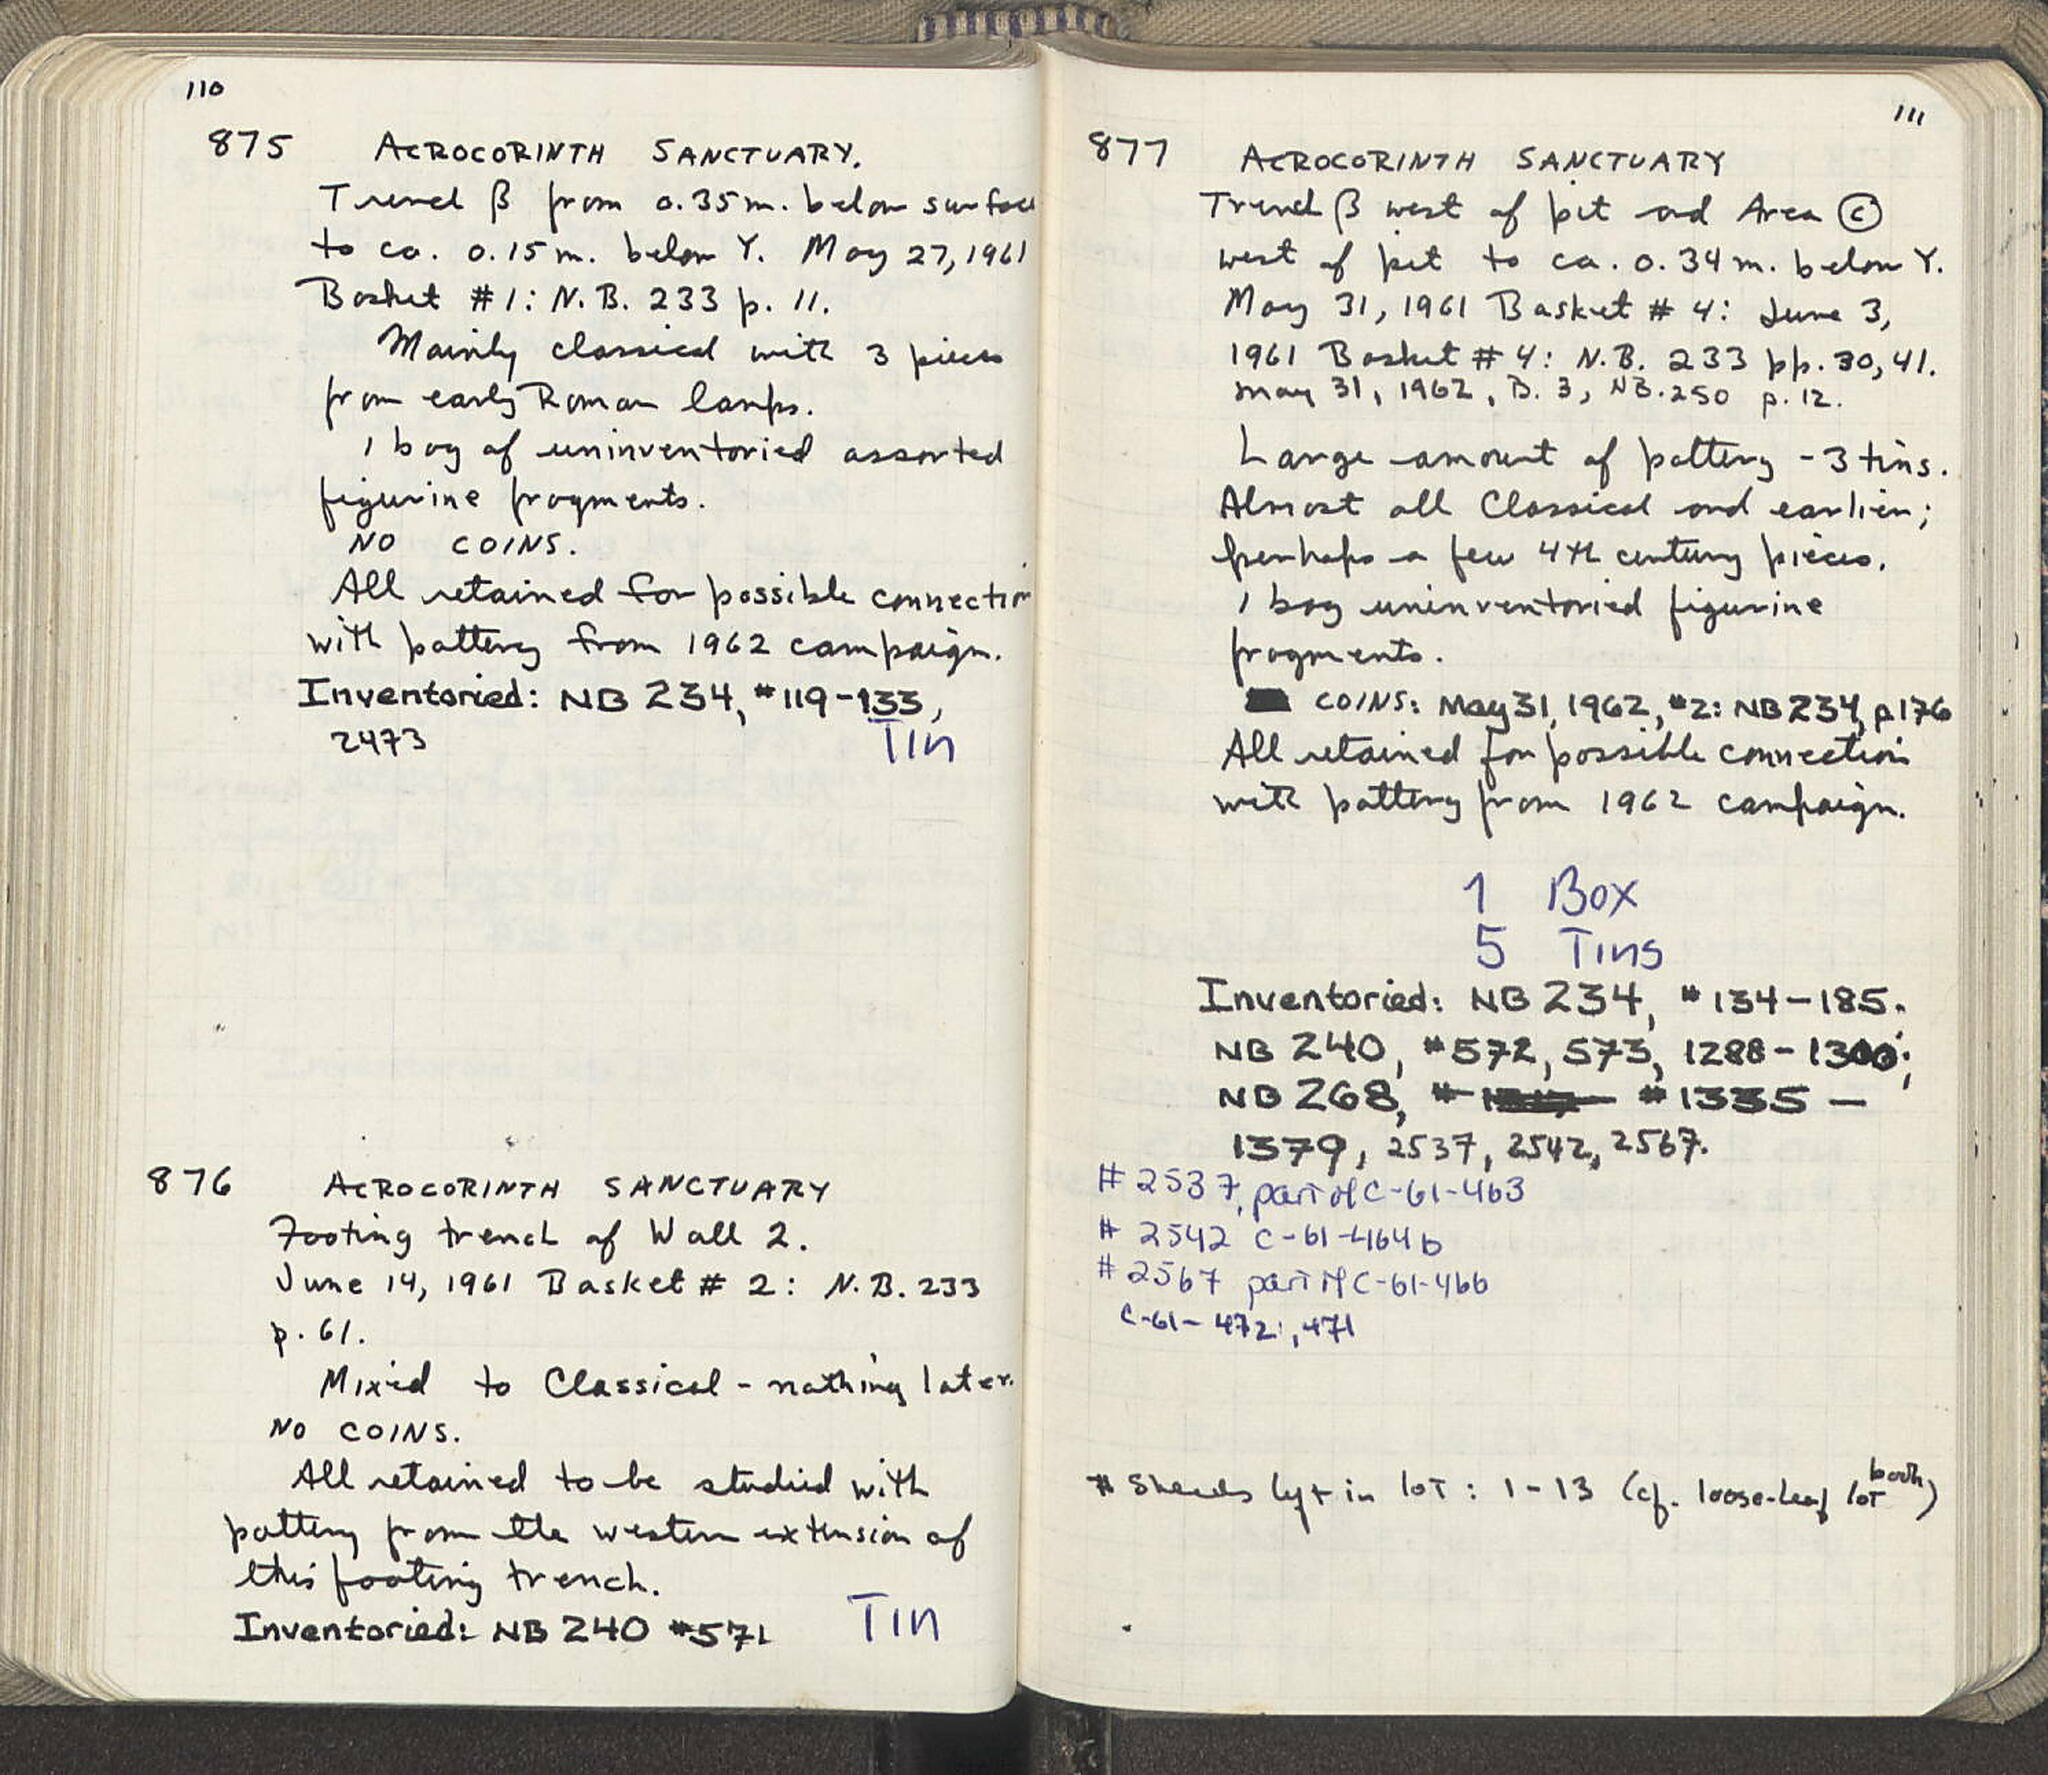 110
875 ACROCORINTH SANCTUARY.
Trench β from 0.35m. below surface
to ca. 0.15m. below Y. May 27, 1961
Basket #1: N.B. 233 p. 11.
Mainly classical with 3 pieces
from early Roman lamps.
1 bag of uninventoried assorted
figurine fragments.
NO COINS.
All retained for possible connection
with pottery from 1962 campaign.
Inventoried: NB 234, #119-133,
2473 Tin
876 ACROCORINTH SANCTUARY
Footing trench of Wall 2.
June 14, 1961 Basket # 2: N.B. 233
p. 61.
Mixed to Classical - nothing later.
NO COINS.
All retained to be studied with
pottery from the western extension of
this footing trench.
Inventoried: NB 240 #571 Tin
111
877 ACROCORINTH SANCTUARY
Trench β west of pit and Area Ⓒ
west of pit to ca. 0.34m. below Y.
May 31, 1961 Basket # 4: June 3,
1961 Basket # 4: N.B. 233 pp. 30, 41.
May 31, 1962, B. 3, NB. 250 p. 12.
Large amount of pottery - 3 tins.
Almost all Classical and earlier;
perhaps a few 4th century pieces.
1 bag uninventoried figurine
fragments.
COINS: May 31, 1962, #2: NB 234, p176
All retained for possible connection
with pottery from 1962 campaign.
1 Box
5 Tins
Inventoried: NB 234, #134-185.
NB 240, #572, 573, 1288-1300;
NB 268, # #1335-
1379, 2537, 2542, 2567.
# 2537, part of C-61-463
# 2542 C-61-464b
# 2567 part of C-61-466
C-61-472, 471
# Sherds left in lot: 1-13 (cf. loose-leaf lot book)